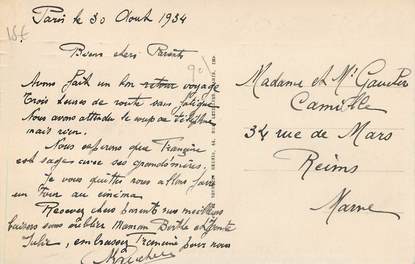 Paris le 30 Août 1934
Biens chers Parents
Avons fait un bon retour voyage
Trois heures de route sans fatigue
Nous avons attendu le coup de téléphone
mais rien.
Nous espérons que Francine
est sage avec ses grands mères.
Je vous quitte nous allons faire
un Tour au cinéma
Recevez chers parents nos meilleurs
baisers sans oublier Maman Berthe et
Julie, embrassez Francine pour nous
Madame et Mr Gaucher
Camille
34 rue de Mars
Reims
Marne